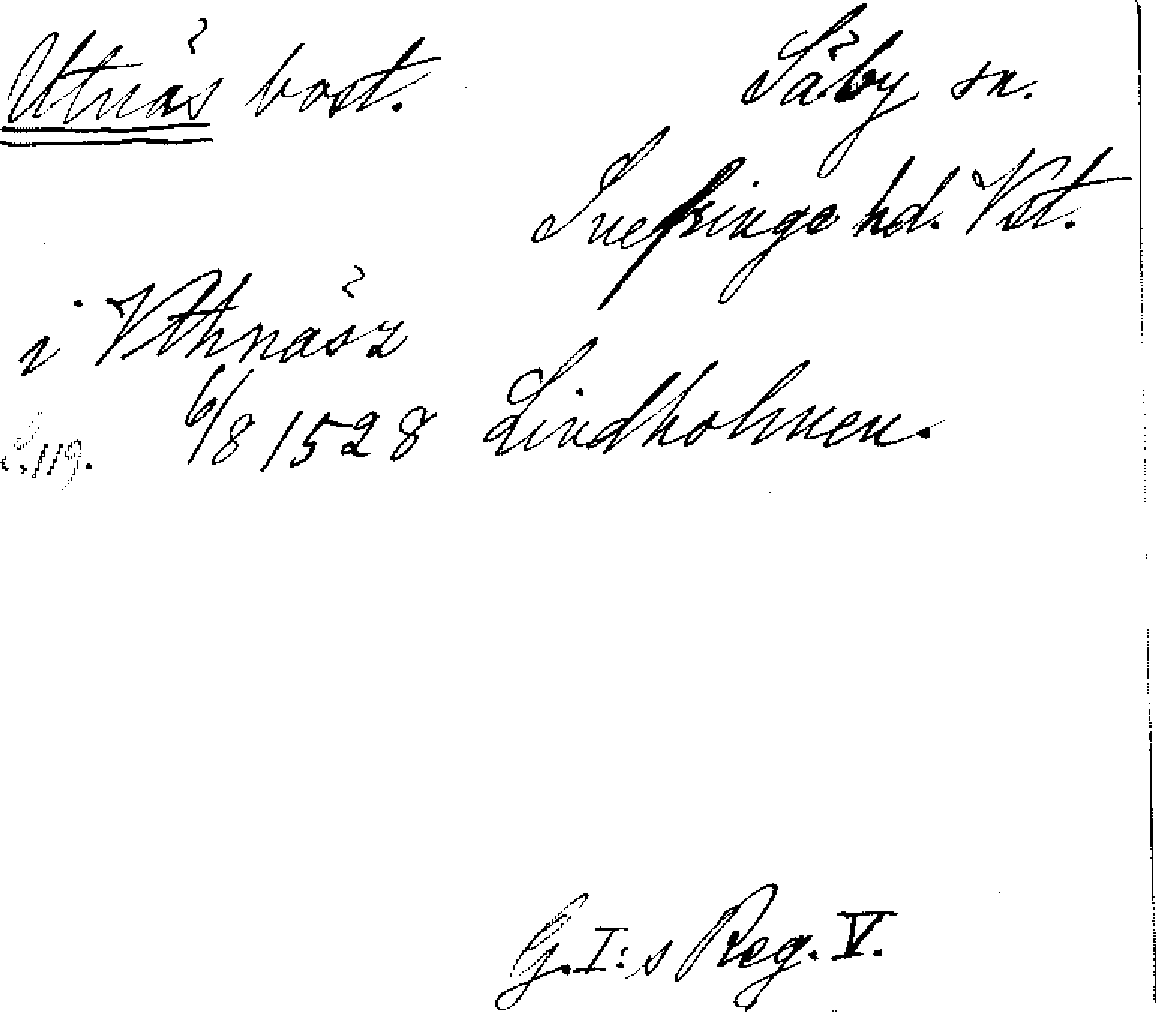 Utnäs bost. Säby sn.
Snefringe hd. Vst.
i Vthnäsz
S. 119. 6/8 1528 Lindholmen.
G. I:s Reg. V.